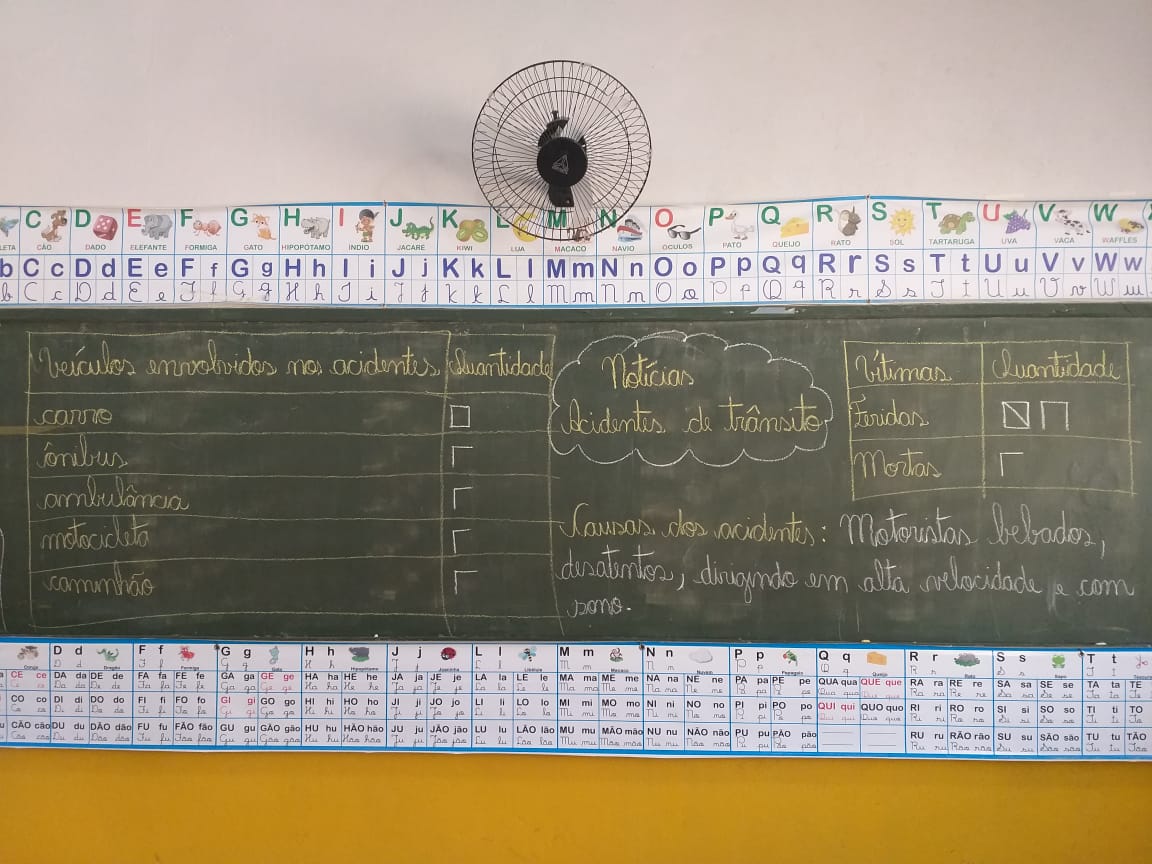 C CÃO D DADO E ELEFANTE F FORMIGA G GATO H HIPOPÓTAMO I ÍNDIO J JACARÉ K KIWI L LUA M MACACO N NAVIO O ÓCULOS P PATO Q QUEIJO R RATO S SOL T TARTARUGA U UVA V VACA W WAFFLES
b C c D d E e F f G g H h I i J j K k L l M m N n O o P p Q q R r S s T t U u V v W w
b C c D d E e F f G g H h I i J j K k L l M m N n O o P p Q q R r S s T t U u V v W w
Veículos envolvidos nos acidentes Quantidade
carro
ônibus
ambulância
motocicleta
caminhão
Notícias
Acidentes de trânsito
Vítimas Quantidade
Feridas
Mortas
Causas dos acidentes: Motoristas bebados,
desatentos, dirigindo em alta velocidade e com
sono.
D d F f G g H h J j L l M m N n P p Q q R r S s T t
CE ce DA da DE de FA fa FE fe GA ga GE ge HA ha HE he JA ja JE je LA la LE le MA ma ME me NA na NE ne PA pa PE pe QUA qua QUE que RA ra RE re SA sa SE se TA ta TE
CO co DI di DO do FI fi FO fo GI gi GO go HI hi HO ho JI ji JO jo LI li LO lo MI mi MO mo NI ni NO no PI pi PO po QUI qui QUO quo RI ri RO ro SI si SO so TI ti TO
CÃO cão DU du DÃO dão FU fu FÃO fão GU gu GÃO gão HU hu HÃO hão JU ju JÃO jão LU lu LÃO lão MU mu MÃO mão NU nu NÃO não PU pu PÃO pão RU ru RÃO rão SU su SÃO são TU tu TÃO